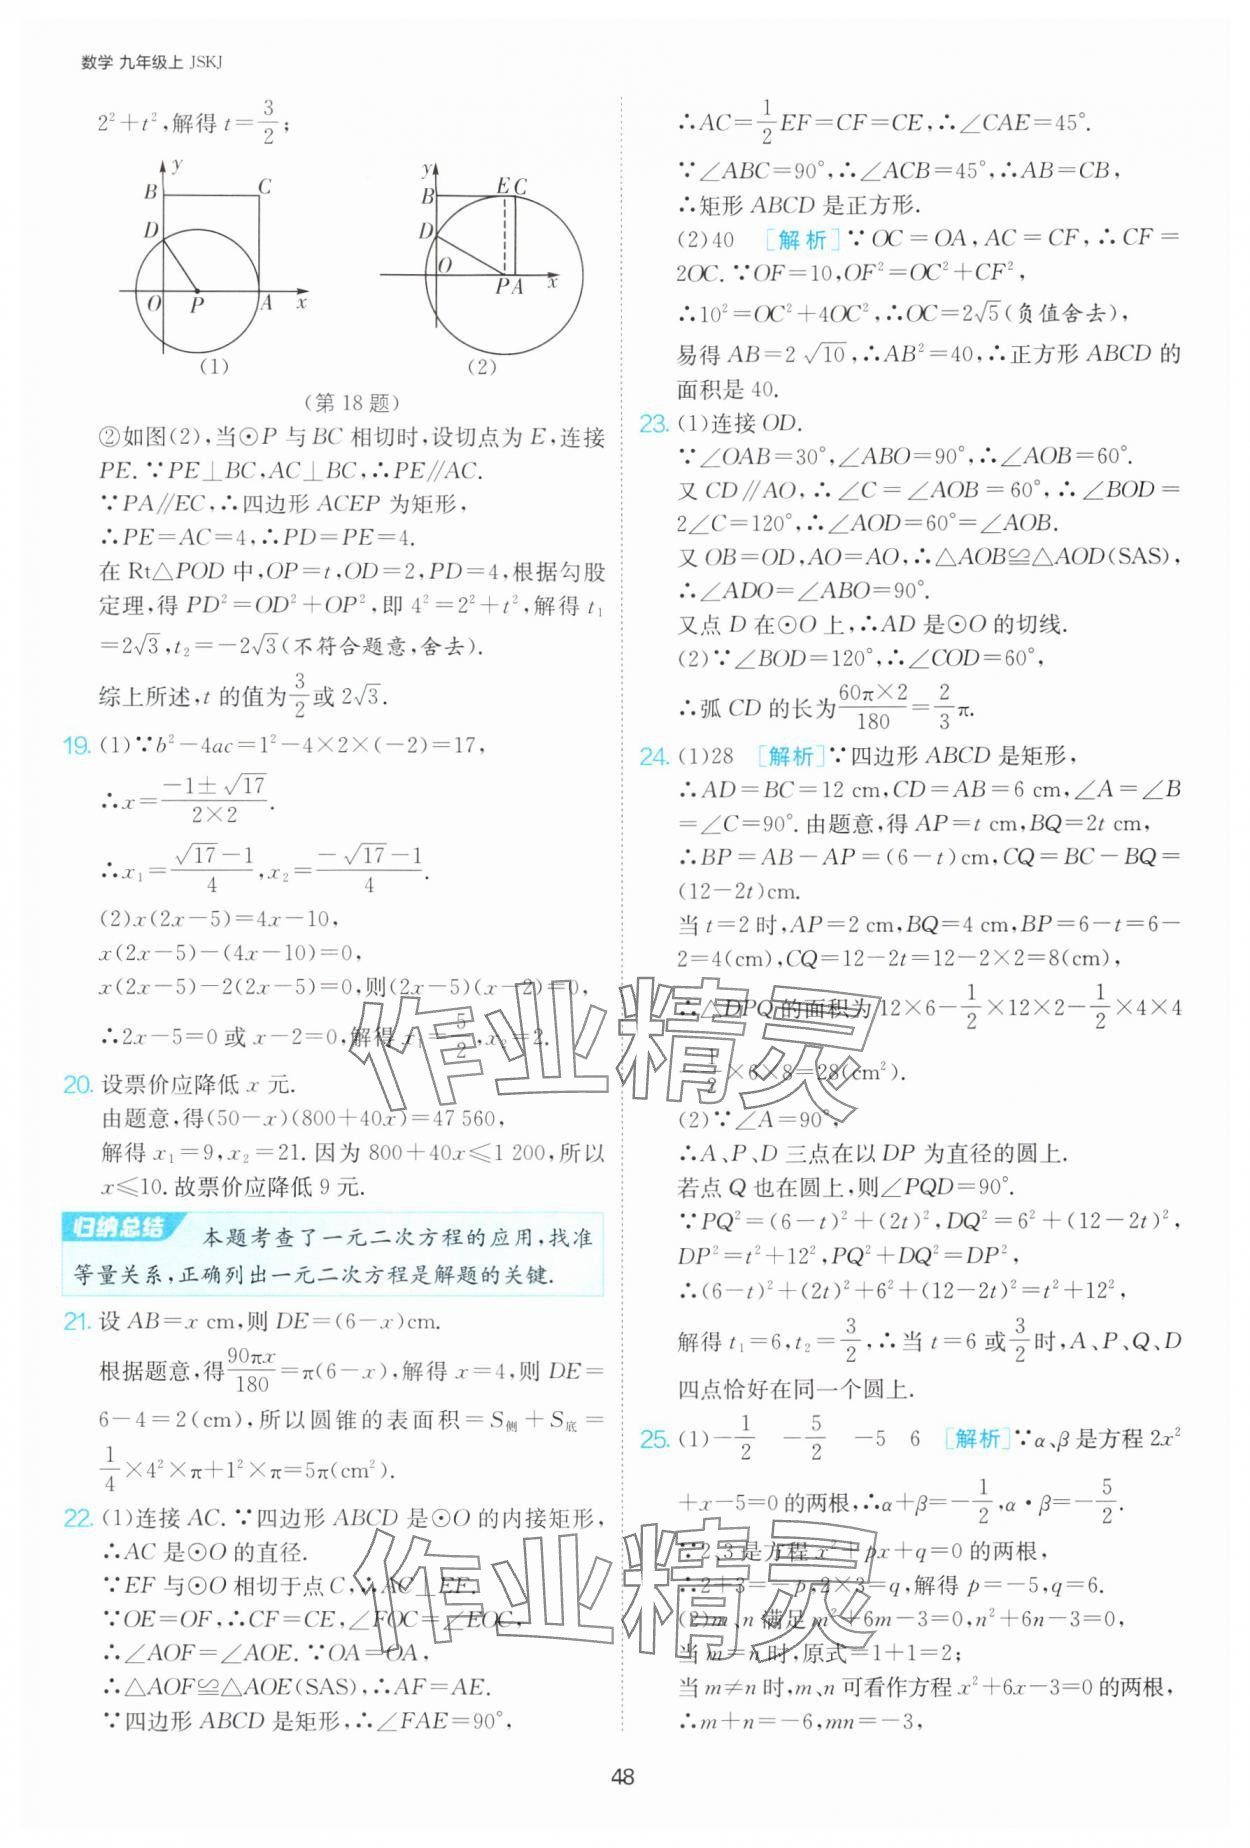 数学 九年级上 JSKJ
2²+t²,解得 t=3/2;
y
B
C
D
O
P
A
x
(1)
y
B
E
C
D
O
P
A
x
(2)
(第18题)
②如图(2),当⊙P 与 BC 相切时,设切点为 E,连接
PE.∵PE⊥BC,AC⊥BC,∴PE∥AC.
∵PA∥EC,∴四边形 ACEP 为矩形,
∴PE=AC=4,∴PD=PE=4.
在 Rt△POD 中,OP=t,OD=2,PD=4,根据勾股
定理,得 PD²=OD²+OP²,即 4²=2²+t²,解得 t₁
=2√3,t₂=-2√3(不符合题意,舍去).
综上所述,t 的值为3/2或 2√3.
19. (1)∵b²-4ac=1²-4×2×(-2)=17,
∴x=(-1±√17)/(2×2).
∴x₁=(√17-1)/4,x₂=(-√17-1)/4.
(2)x(2x-5)=4x-10,
x(2x-5)-(4x-10)=0,
x(2x-5)-2(2x-5)=0,则(2x-5)(x-2)=0,
∴2x-5=0 或 x-2=0,解得 x₁=5/2,x₂=2.
20. 设票价应降低 x 元.
由题意,得(50-x)(800+40x)=47 560,
解得 x₁=9,x₂=21.因为 800+40x≤1 200,所以
x≤10.故票价应降低 9 元.
归纳总结 本题考查了一元二次方程的应用,找准
等量关系,正确列出一元二次方程是解题的关键.
21. 设 AB=x cm,则 DE=(6-x)cm.
根据题意,得90πx/180=π(6-x),解得 x=4,则 DE=
6-4=2(cm),所以圆锥的表面积=S侧+S底=
1/4×4²×π+1²×π=5π(cm²).
22. (1)连接 AC.∵四边形 ABCD 是⊙O 的内接矩形,
∴AC 是⊙O 的直径.
∵EF 与⊙O 相切于点 C,∴AC⊥EF.
∵OE=OF,∴CF=CE,∠FOC=∠EOC,
∴∠AOF=∠AOE.∵OA=OA,
∴△AOF≌△AOE(SAS),∴AF=AE.
∵四边形 ABCD 是矩形,∴∠FAE=90°,
∴AC=1/2EF=CF=CE,∴∠CAE=45°.
∵∠ABC=90°,∴∠ACB=45°,∴AB=CB,
∴矩形 ABCD 是正方形.
(2)40 [解析]∵OC=OA,AC=CF,∴CF=
2OC.∵OF=10,OF²=OC²+CF²,
∴10²=OC²+4OC²,∴OC=2√5(负值舍去),
易得 AB=2√10,∴AB²=40,∴正方形 ABCD 的
面积是 40.
23. (1)连接 OD.
∵∠OAB=30°,∠ABO=90°,∴∠AOB=60°.
又 CD∥AO,∴∠C=∠AOB=60°,∴∠BOD=
2∠C=120°,∴∠AOD=60°=∠AOB.
又 OB=OD,AO=AO,∴△AOB≌△AOD(SAS),
∴∠ADO=∠ABO=90°.
又点 D 在⊙O 上,∴AD 是⊙O 的切线.
(2)∵∠BOD=120°,∴∠COD=60°,
∴弧 CD 的长为(60π×2)/180=2/3π.
24. (1)28 [解析]∵四边形 ABCD 是矩形,
∴AD=BC=12 cm,CD=AB=6 cm,∠A=∠B
=∠C=90°.由题意,得 AP=t cm,BQ=2t cm,
∴BP=AB-AP=(6-t)cm,CQ=BC-BQ=
(12-2t)cm.
当 t=2 时,AP=2 cm,BQ=4 cm,BP=6-t=6-
2=4(cm),CQ=12-2t=12-2×2=8(cm),
∴△DPQ 的面积为 12×6-1/2×12×2-1/2×4×4
-1/2×6×8=28(cm²).
(2)∵∠A=90°,
∴A、P、D 三点在以 DP 为直径的圆上.
若点 Q 也在圆上,则∠PQD=90°.
∵PQ²=(6-t)²+(2t)²,DQ²=6²+(12-2t)²,
DP²=t²+12²,PQ²+DQ²=DP²,
∴(6-t)²+(2t)²+6²+(12-2t)²=t²+12²,
解得 t₁=6,t₂=3/2,∴当 t=6 或3/2时,A、P、Q、D
四点恰好在同一个圆上.
25. (1)-1/2 -5/2 -5 6 [解析]∵α、β 是方程 2x²
+x-5=0 的两根,∴α+β=-1/2,α·β=-5/2.
∵2、3 是方程 x²+px+q=0 的两根,
∴2+3=-p,2×3=q,解得 p=-5,q=6.
(2)m、n 满足 m²+6m-3=0,n²+6n-3=0,
当 m=n 时,原式=1+1=2;
当 m≠n 时,m、n 可看作方程 x²+6x-3=0 的两根,
∴m+n=-6,mn=-3,
作业精灵
作业精灵
48